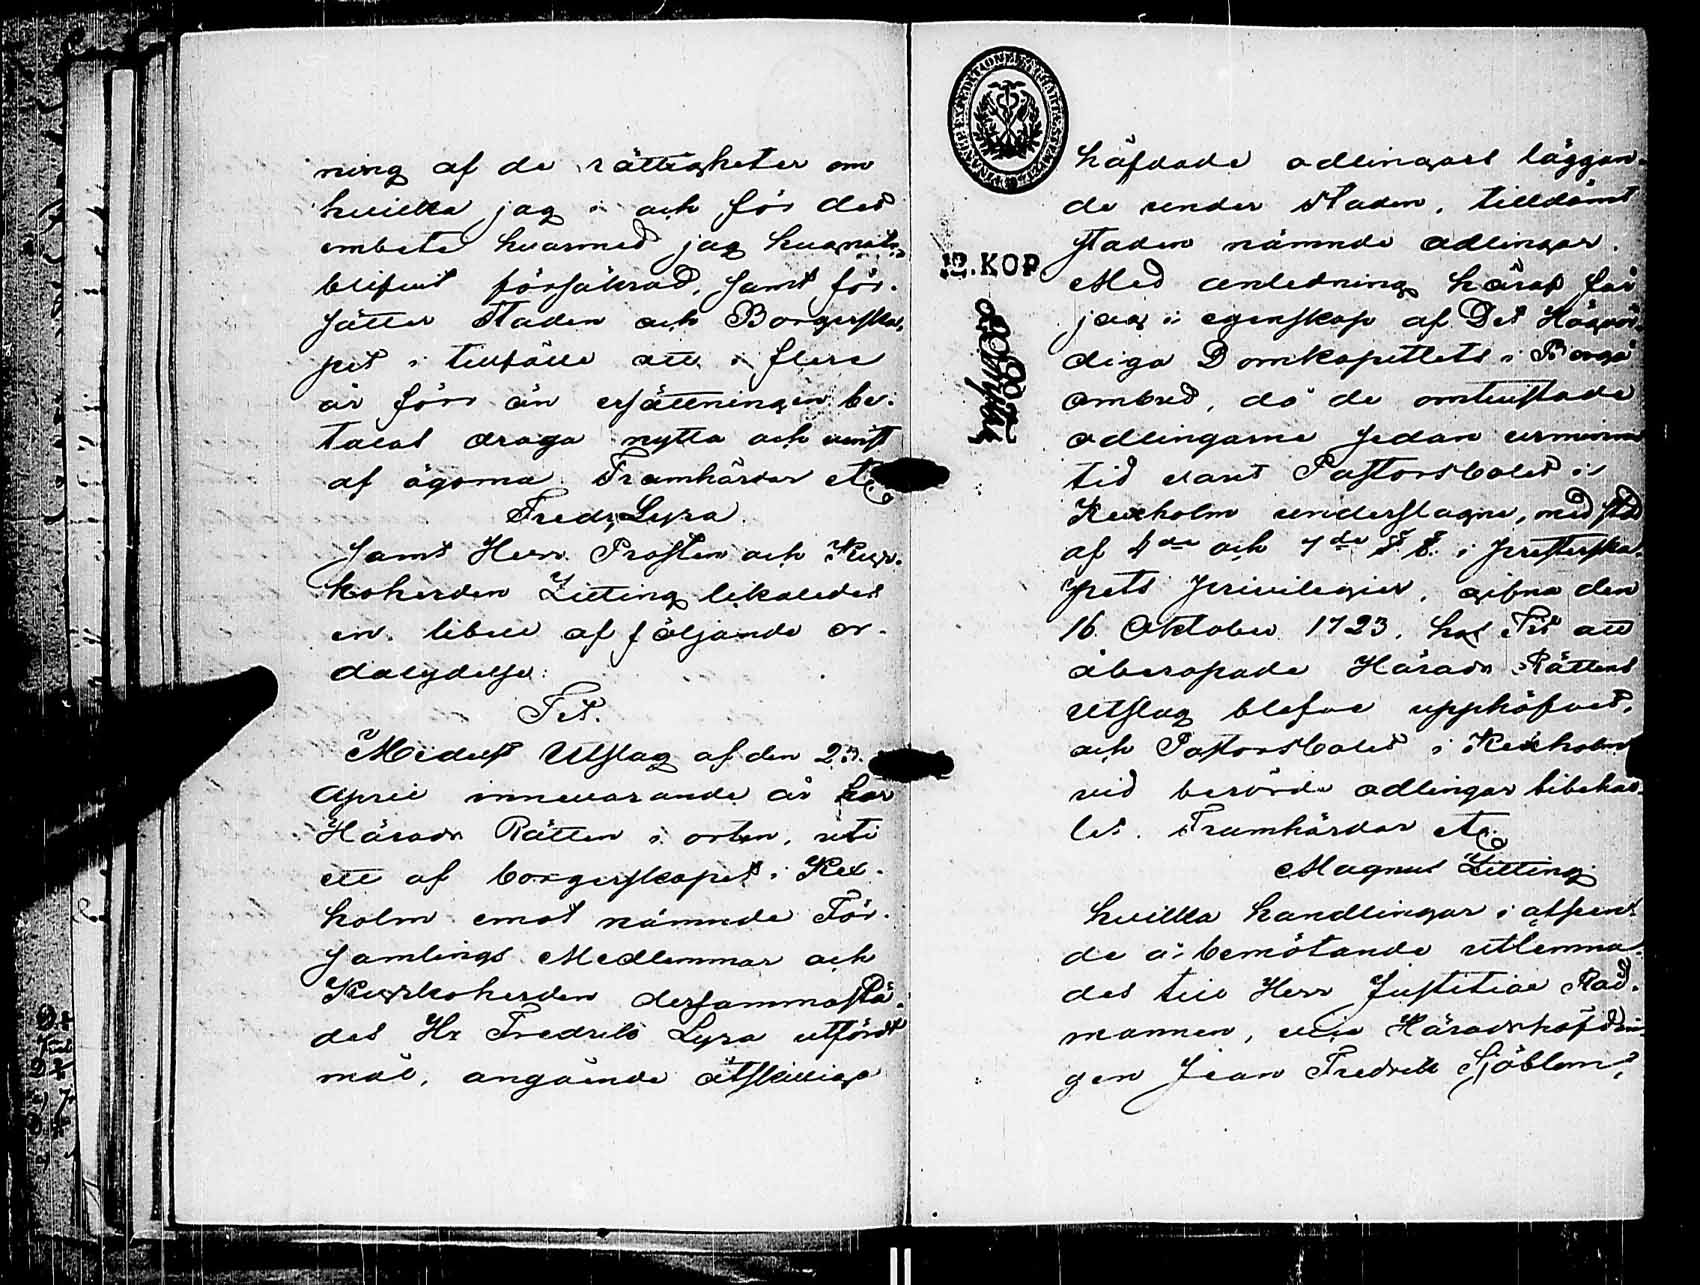 ning af de rättigheter om
hvilka jag i och för det
embete hvarmed jag hugnats
blifvit försäkrad, samt för-
sätter Staden och Borgerska-
pet i tillfälle att i flere
år förr än ersättningen be-
talas draga nytta och vinst
af ägorna. Framhärdar etc
Fredr. Lyra
samt Herr Prosten och Kyr-
koherden Zitting likaledes
en libell af följande or-
dalydelse:
Tit.
Medelst Utslag af den 23.
April innevarande år har
Härads Rätten i orten, uti
ett af borgerskapet i Kex-
holm emot nämnde För-
samlings Medlemmar och
Kyrkoherden dersammastä-
des Hr Fredrik Lyra utfördt
mål, angående åtskillige
häfdade odlingars läggan-
de under Staden, tilldömt
staden nämnde odlingar.
Med anledning häraf får
jag i egenskap af Det Högvör-
diga Domkapitlets i Borgå
ombud, då de omtvistade
odlingarne sedan urminnes
tid varit Pastorsbolet i
Kexholm underlagne, med stöd
af 4de och 7de §§. i presterska-
pets privilegier, gifna den
16 Oktober 1723, hos Tit att
åberopade Härads Rättens
Utslag blefve upphäfvet,
och Pastorsbolet i Kexholm
vid berörde odlingar bibehål-
let. Framhärdar etc
Magnus Zitting
hvilka handlingar i afseen-
de å bemötande utlemna-
des till Herr Justitiæ Råd-
mannen, vice Häradshöfdin-
gen Jean Fredrik Sjöblom,
12. KOP